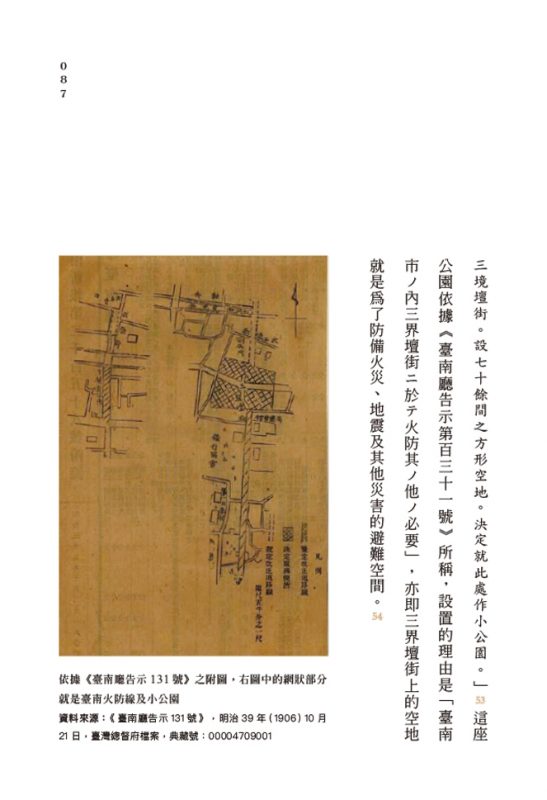 087
三境壇街。設七十餘間之方形空地。決定就此處作小公園。」53 這座
公園依據《臺南廳告示第百三十一號》所稱，設置的理由是「臺南
市ノ內三界壇街ニ於テ火防其ノ他ノ必要」，亦即三界壇街上的空地
就是為了防備火災、地震及其他災害的避難空間。54
凡例
依據《臺南廳告示 131 號》之附圖，右圖中的網狀部分
就是臺南火防線及小公園
資料來源：《臺南廳告示 131 號》，明治 39 年 (1906) 10 月
21 日，臺灣總督府檔案，典藏號：00004709001